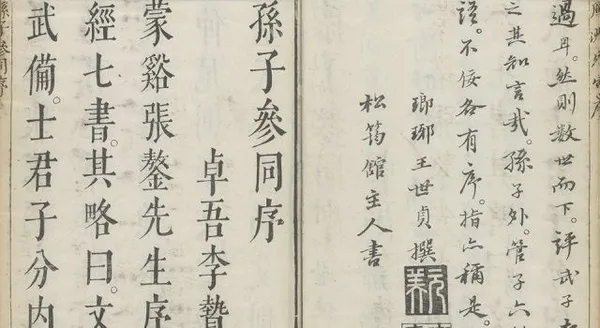 過耳。然則数世而下。評武子
之其知言哉。孫子外。管子六
語。不佞各有序。指亦稱是
瑯琊王世貞撰
松筠館主人書
孫子參同序
卓吾李贄
蒙谿張鏊先生序
經七書。其略曰。文
武備。士君子分内
孫子參同序